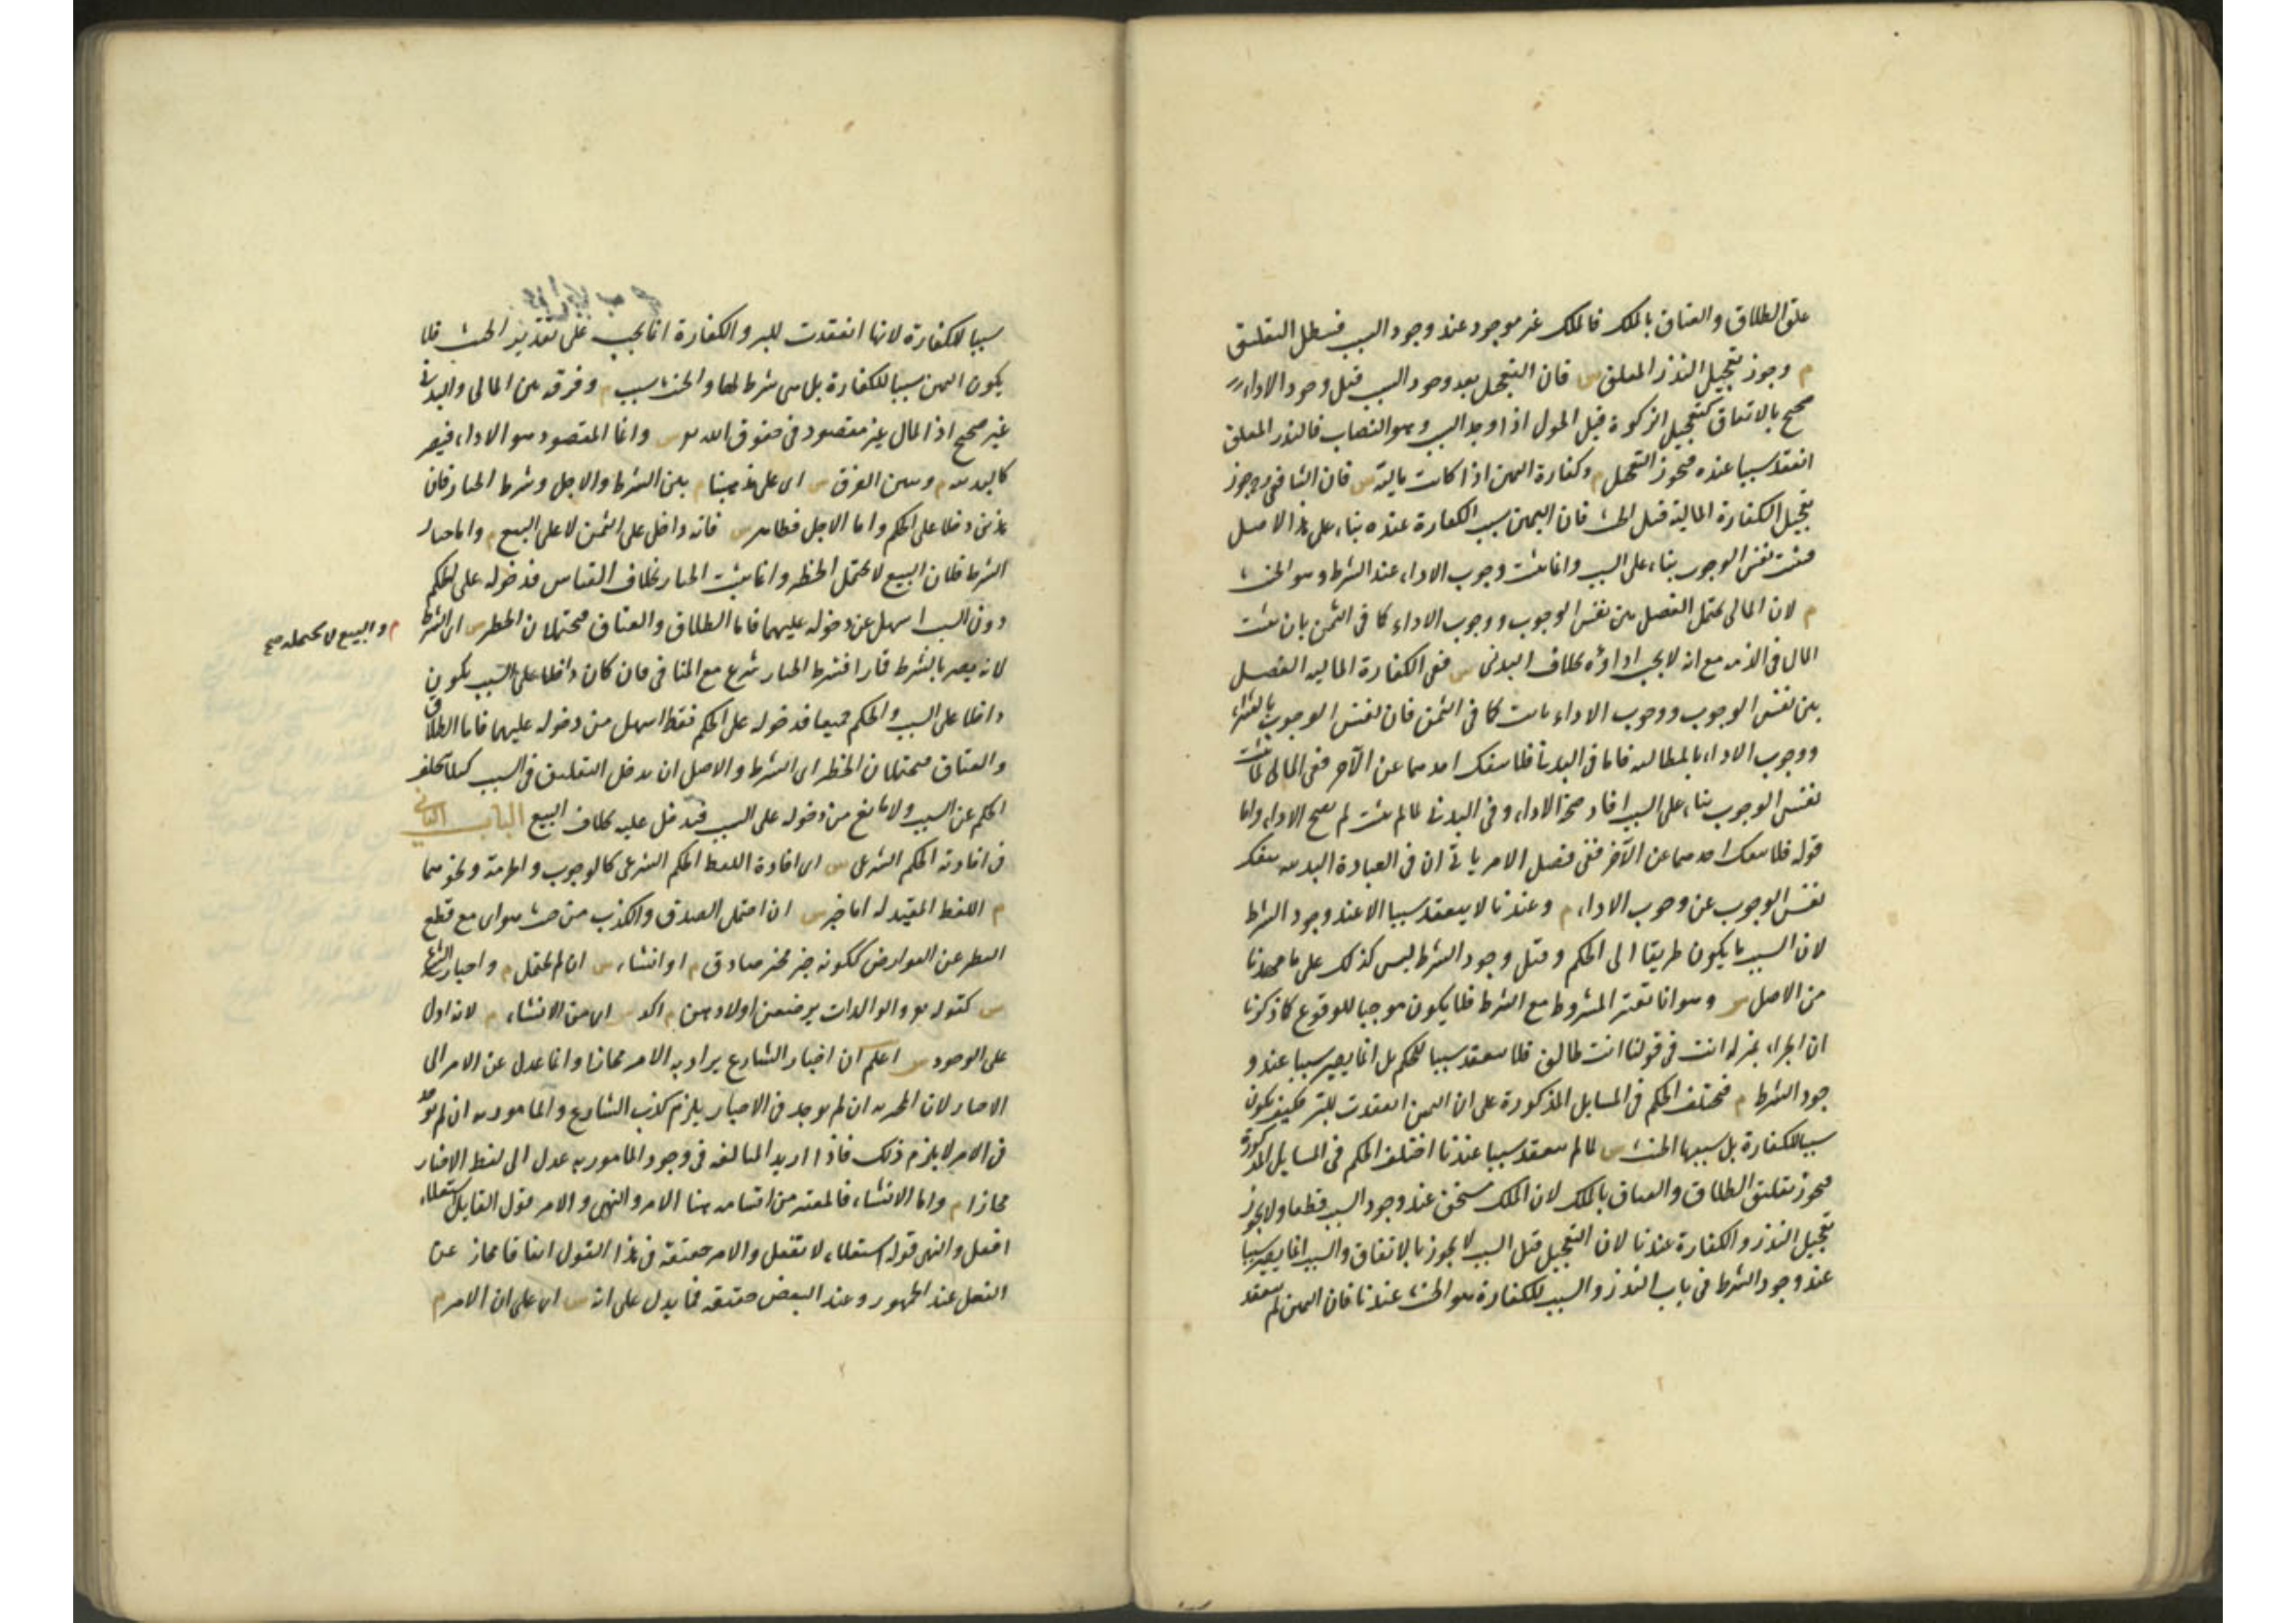 علق الطلاق والعتاق بالملك فالملك غير موجود عند وجود السبب فيبطل التعليق
م وجوز تعجيل النذر المعلق ش فان التعجيل بعد وجود السبب قبل وجود الاداء
صحيح بالاتفاق كتعجيل الزكوة قبل الحول اذا وجد السبب وهو النصاب فالنذر المعلق
انعقد سببا عنده فيجوز التعجيل م وكفارة اليمين اذا كانت مالية ش فان الشافعي يجوز
تعجيل الكفارة المالية قبل الحنث فان اليمين سبب الكفارة عنده بناء على هذا الاصل
فيثبت نفس الوجوب بناء على السبب وانما يثبت وجوب الاداء عند الشرط وهو الحنث
م لان المالي يحتمل الفصل بين نفس الوجوب ووجوب الاداء كما في الثمن بان يثبت
المال في الذمة مع انه لا يجب اداؤه بخلاف البدني ش ففي الكفارة المالية الفصل
بين نفس الوجوب ووجوب الاداء ثابت كما في الثمن فان نفس الوجوب بالشراء
ووجوب الاداء بالمطالبة فاما في البدنية فلا ينفك احدهما عن الآخر ففي المالي لما ثبت
نفس الوجوب بناء على السبب افاد صحة الاداء وفي البدني لما لم يثبت لم يصح الاداء واما
قوله فلا ينفك احدهما عن الآخر ففي فصل الامر ياتي ان في العبادة البدنية ينفك
نفس الوجوب عن وجوب الاداء م وعندنا لا ينعقد سببا الا عند وجود الشرط
لان السبب ما يكون طريقا الى الحكم وقبل وجود الشرط ليس كذلك على ما مهدنا
من الاصل ش وهو انا نعتبر المشروط مع الشرط فلا يكون موجبا للوقوع كما ذكرنا
ان الجزاء بمنزلة انت في قولنا انت طالق فلا ينعقد سببا للحكم بل انما يصير سببا عند و
جود الشرط م فيختلف الحكم في المسايل المذكورة على ان اليمين انعقدت للبر فكيف يكون
سببا للكفارة بل سببها الحنث ش لما لم ينعقد سببا عندنا اختلف الحكم في المسايل المذكورة
فيجوز تعليق الطلاق والعتاق بالملك لان الملك متحقق عند وجود السبب قطعا ولا يجوز
تعجيل النذر والكفارة عندنا لان التعجيل قبل السبب لا يجوز بالاتفاق والسبب انما يصير سببا
عند وجود الشرط في باب النذر والسبب للكفارة هو الحنث عندنا فان اليمين لم ينعقد
سببا للكفارة لانها انعقدت للبر والكفارة انما يجب على تقدير الحنث فلا
يكون اليمين سببا للكفارة بل هي شرط لها والحنث سبب م وفرقه بين المالي والبدني
غير صحيح اذ المال غير مقصود في حقوق الله تع ش وانما المقصود هو الاداء فيصير
كالبدنية م وتبين الفرق ش اي على مذهبنا م بين الشرط والاجل وشرط الخيار فان
هذين دخلا على الحكم واما الاجل فظاهر ش فانه داخل على الثمن لا على البيع م واما خيار
الشرط فلان البيع لا يحتمل الخطر وانما يثبت الخيار بخلاف القياس فدخوله على الحكم
دون السبب اسهل عن دخوله عليهما فاما الطلاق والعتاق فيحتملان الخطر ش اي الشرط
م والبيع لا يحتمله صح
لانه يصير بالشرط قمارا فشرط الخيار شرع مع المنافي فان كان داخلا على السبب يكون
داخلا على السبب والحكم جميعا فدخوله على الحكم فقط اسهل من دخوله عليهما فاما الطلاق
والعتاق فيحتملان الخطر اي الشرط والاصل ان يدخل التعليق في السبب كيلا يتخلف
الحكم عن السبب ولا مانع من دخوله على السبب فيدخل عليه بخلاف البيع الباب الثاني
في افادته الحكم الشرعي ش اي افادة اللفظ الحكم الشرعي كالوجوب والحرمة ونحوهما
م اللفظ المفيد له اما خبر ش ان احتمل الصدق والكذب من حيث هو اي مع قطع
النظر عن العوارض ككونه خبر مخبر صادق م او انشاء ش ان لم يحتمل م واخبار الشارع
ش كقوله تع والوالدات يرضعن اولادهن م آكد ش اي من الانشاء م لانه ادل
على الوجود ش اعلم ان اخبار الشارع يراد به الامر مجازا وانما عدل عن الامر الى
الاخبار لان المخبر به ان لم يوجد في الاخبار يلزم كذب الشارع والمامور به ان لم يوجد
في الامر لا يلزم ذلك فاذا اريد المبالغة في وجود المامور به عدل الى لفظ الاخبار
مجازا م واما الانشاء فالمعتبر من اقسامه هنا الامر والنهي والامر قول القايل استعلاء
افعل والنهي قوله استعلاء لا تفعل والامر حقيقة في هذا القول اتفاقا مجاز عن
الفعل عند الجمهور وعند البعض حقيقة فما يدل على انه ش اي على ان الامر م